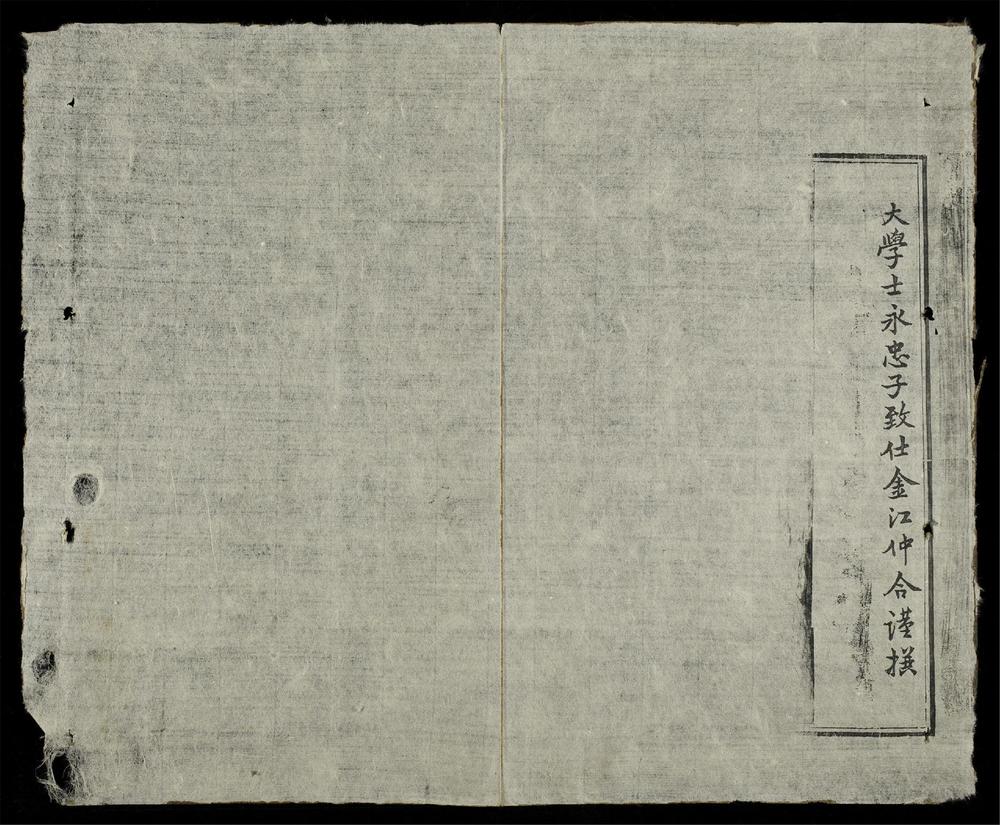 大學士永忠子致仕金江仲合謹撰